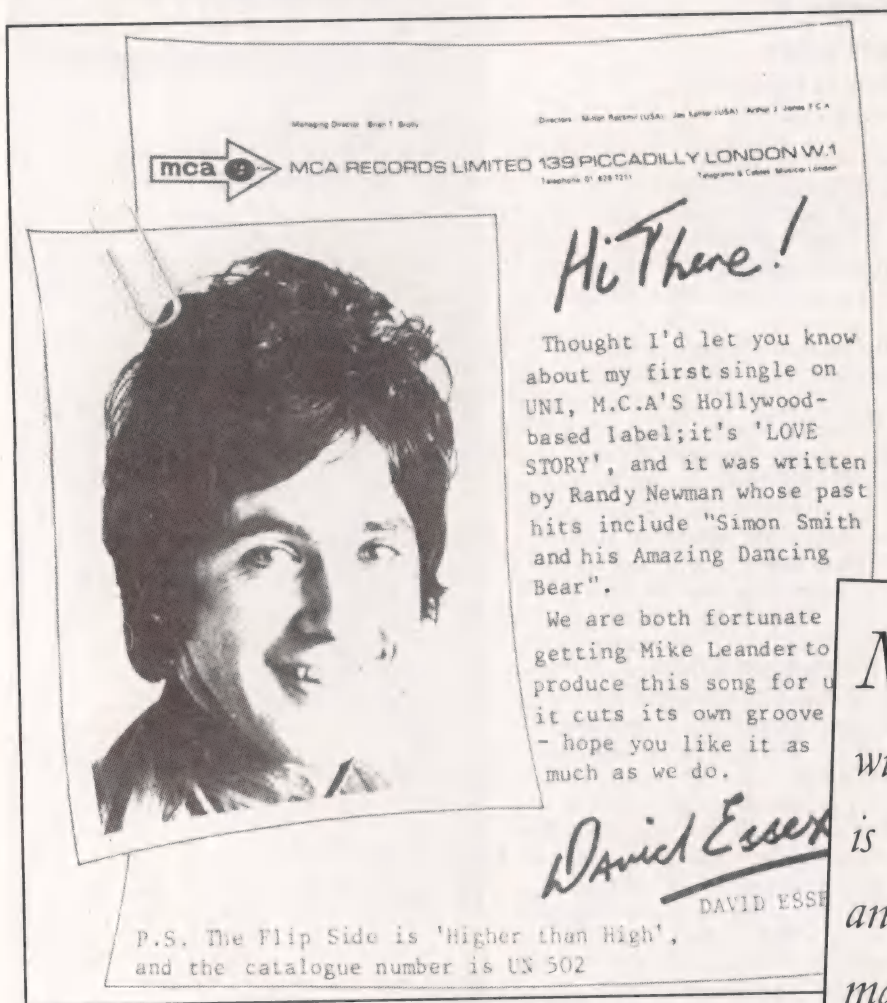 Managing Director Brian T. Brolly
Directors Milton Rackmil (USA) Arthur J. Jones F C A
mca
MCA RECORDS LIMITED 139 PICCADILLY LONDON W.1
Telephone 01 629 7211 Telegrams & Cables Musicor London
Hi There!
Thought I'd let you know
about my first single on
UNI, M.C.A'S Hollywood-
based label;it's 'LOVE
STORY', and it was written
by Randy Newman whose past
hits include "Simon Smith
and his Amazing Dancing
Bear".
We are both fortunate
getting Mike Leander to
produce this song for u
it cuts its own groove
- hope you like it as
much as we do.
David Essex
DAVID ESSE
P.S. The Flip Side is 'Higher than High',
and the catalogue number is UN 502
is
an